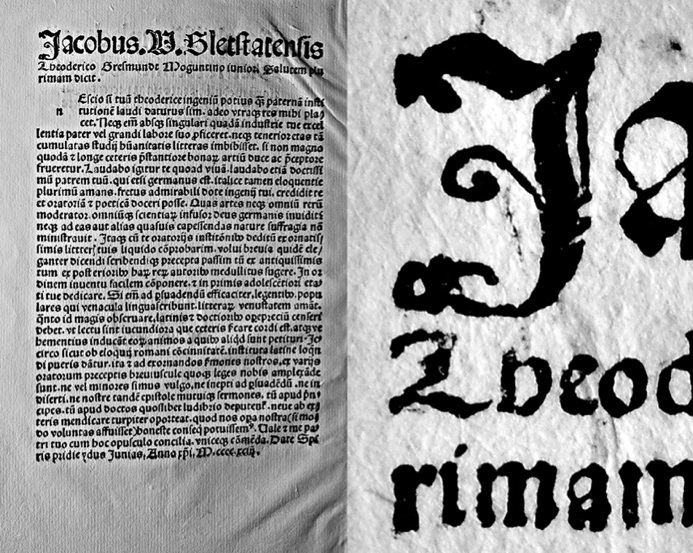 Jacobus.W.Sletstatensis
Theoderico Gresmunde Moguntino iuniori Salutem plu
rimam dicit.
n Escio si tuã theoderice ingeniũ potius q̃ paternã insti
tutionẽ laudi daturus sim. adeo vtraq; res mihi pla
cet. Neq; em̃ absq; singulari quadã industrie tue excel
lentia pater vel grandi labore suo ꝑficeret. neq; tenerior etas tã
cumulatas studijs hũanitatis litteras imbibisset. si non magno
quodã z longe ceteris p̃stantiore bonaꝝ artiũ duce ac p̃ceptore
frueretur. Laudabo igitur te quoad viuã. laudabo etiã doctissi
mũ patrem tuũ. qui etsi germanus est. italice tamen eloquentie
plurimũ amans. fretus admirabili dote ingenij tui. credidit te
et oratoriã z poeticã doceri posse. Quas artes neq; omniũ rerũ
moderator. omniũq; scientiaꝝ infusor deus germanis inuidit
neq; ad eas aut alias quasuis capescendas nature suffragia nõ
ministrauit. Itaq; cũ te oratorijs institõnibus deditũ ex ornatis
simis litteris tuis liquido cõprobarim. volui breuia quedã ele
ganter dicendi scribendiq; precepta passim tũ ex antiquissimis
tum ex posterioribus harum rerum autoribus medullitus sugere. In or
dinem inuentu facilem cõponere. z in primis adolescẽtiori eta
ti tue dedicare. Si em̃ ad ꝑsuadendũ efficaciter. legentibus. popu
lares qui vernacula lingua scribunt. litteraꝝ venustatem amãt.
q̃nto id magis obseruare. latinis z doctioribus opeprecium censeri
debet. vt lectu sint iucundiora que ceteris
hementius inducãt eoꝝ animos a quibus aliqd sunt petituri.
circo sicut ob eloquij romani cõcinnitatẽ. instituta latine loqñ
di pueris dãtur. ita z ad exornandos sermones nostros. ex varijs
oratorum preceptis breuiuscule quoq; leges nobis amplectẽde
sunt. ne vel minores simus vulgo. ne inepti ad ꝑsuadẽdũ. ne in
diserti. ne nostre tandẽ epistole mutuiq; sermones. tũ apud prin
cipes. tũ apud doctos quoslibet ludibrio deputentur. neue ab ex
teris mendicare turpiter oporteat. quod nos opa nostra
do voluntas affuisset honeste conseq̃ potuissemus. Vale z me pa
tri tuo cum hoc opusculo concilia. vniceq; cõmẽda. Date Spi
ris pridie ydus Junias. Anno xp̃i. M.cccc.xciij.
Ja
Theod
rimam